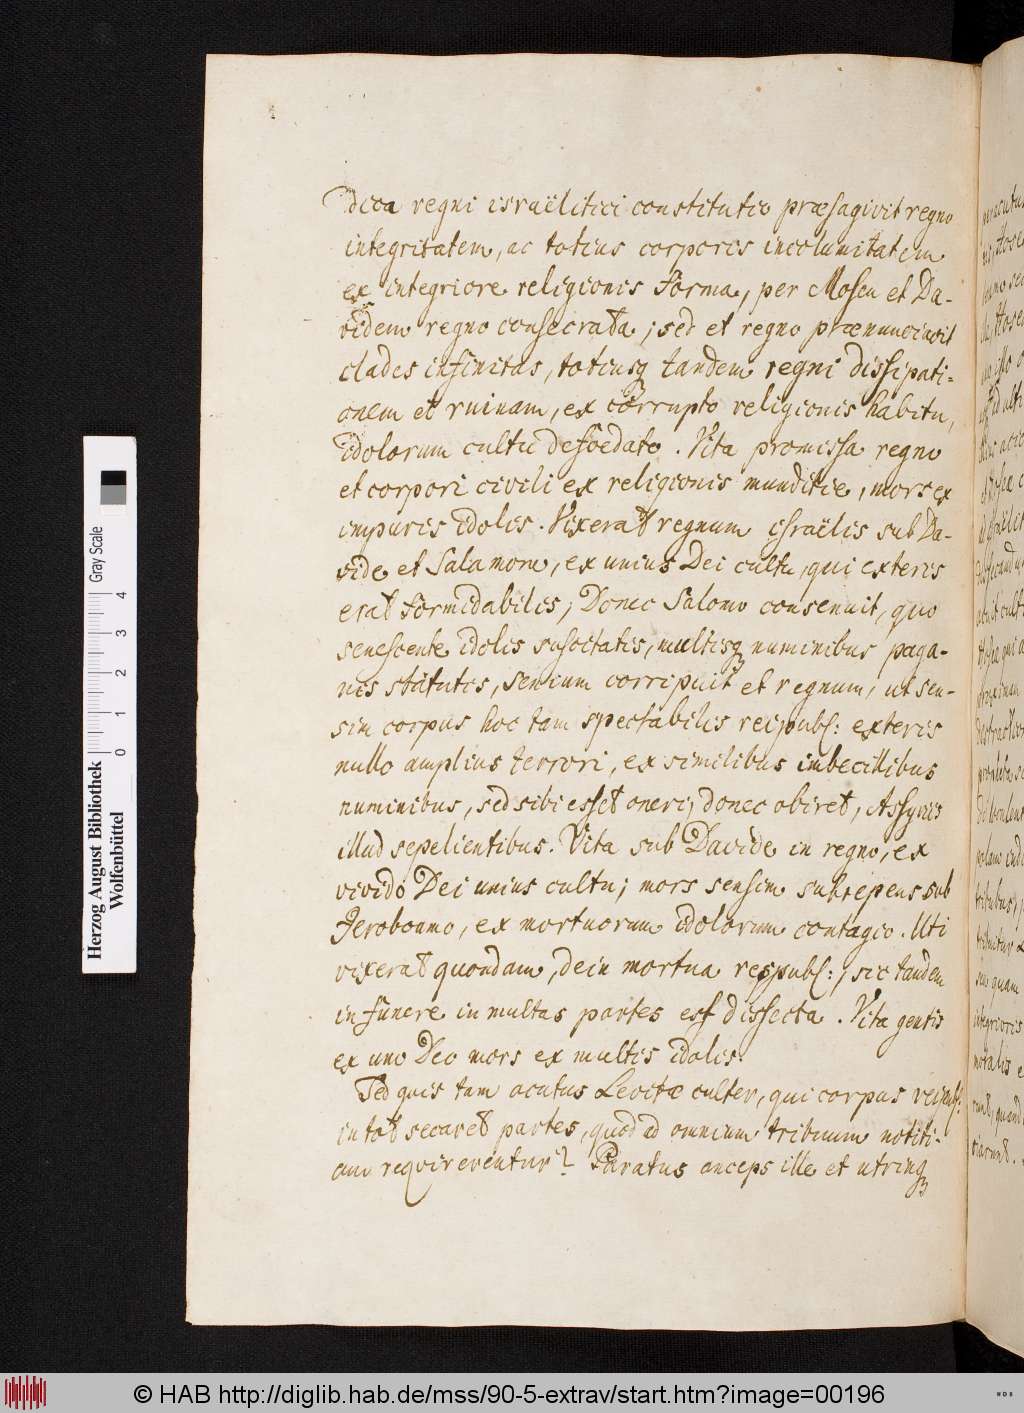 dica regni israëlitici constitutio præsagivit regno
integritatem, ac totius corporis incolumitatem
ex integriore religionis forma, per Mosen et Da-
videm regno consecrata; sed et regno prænunciavit
clades infinitas, totiusq tandem regni dissipati-
onem et ruinam, ex corrupto religionis habitu,
idolorum cultu defoedato. Vita promissa regno
et corpori civili ex religionis munditie, mors ex
impuris idolis. Vixerat regnum israëlis sub Da-
vide et Salamone, ex unius Dei cultu, qui exteris
erat formidabilis; Donec Salomo consenuit, quo
senescente idolis suscitatis, multisq numinibus paga-
nis statutis, senium corripuit et regnum, ut sen-
sim corpus hoc tam spectabilis reipubl: exteris
nullo amplius terrori, ex similibus imbecillibus
numinibus, sed sibi esset oneri, donec obiret, Assyriis
illud sepelientibus. Vita sub Davide in regno, ex
vivido Dei unius cultu; mors sensim subrepens sub
Jeroboamo, ex mortuorum idolorum contagio. Uti
vixerat quondam, dein mortua respubl:, sic tandem
in funere in multas partes est dissecta. Vita gentis
ex uno Deo mors ex multis idolis.
Sed quis tam acutus Levitæ culter, qui corpus reipubl:
in tot secaret partes, quod ad omnium tribuum notiti-
am requirerentur? Paratus anceps ille et utrinq
Herzog August Bibliothek
Wolfenbüttel
0 1 2 3 4
Gray Scale
© HAB http://diglib.hab.de/mss/90-5-extrav/start.htm?image=00196